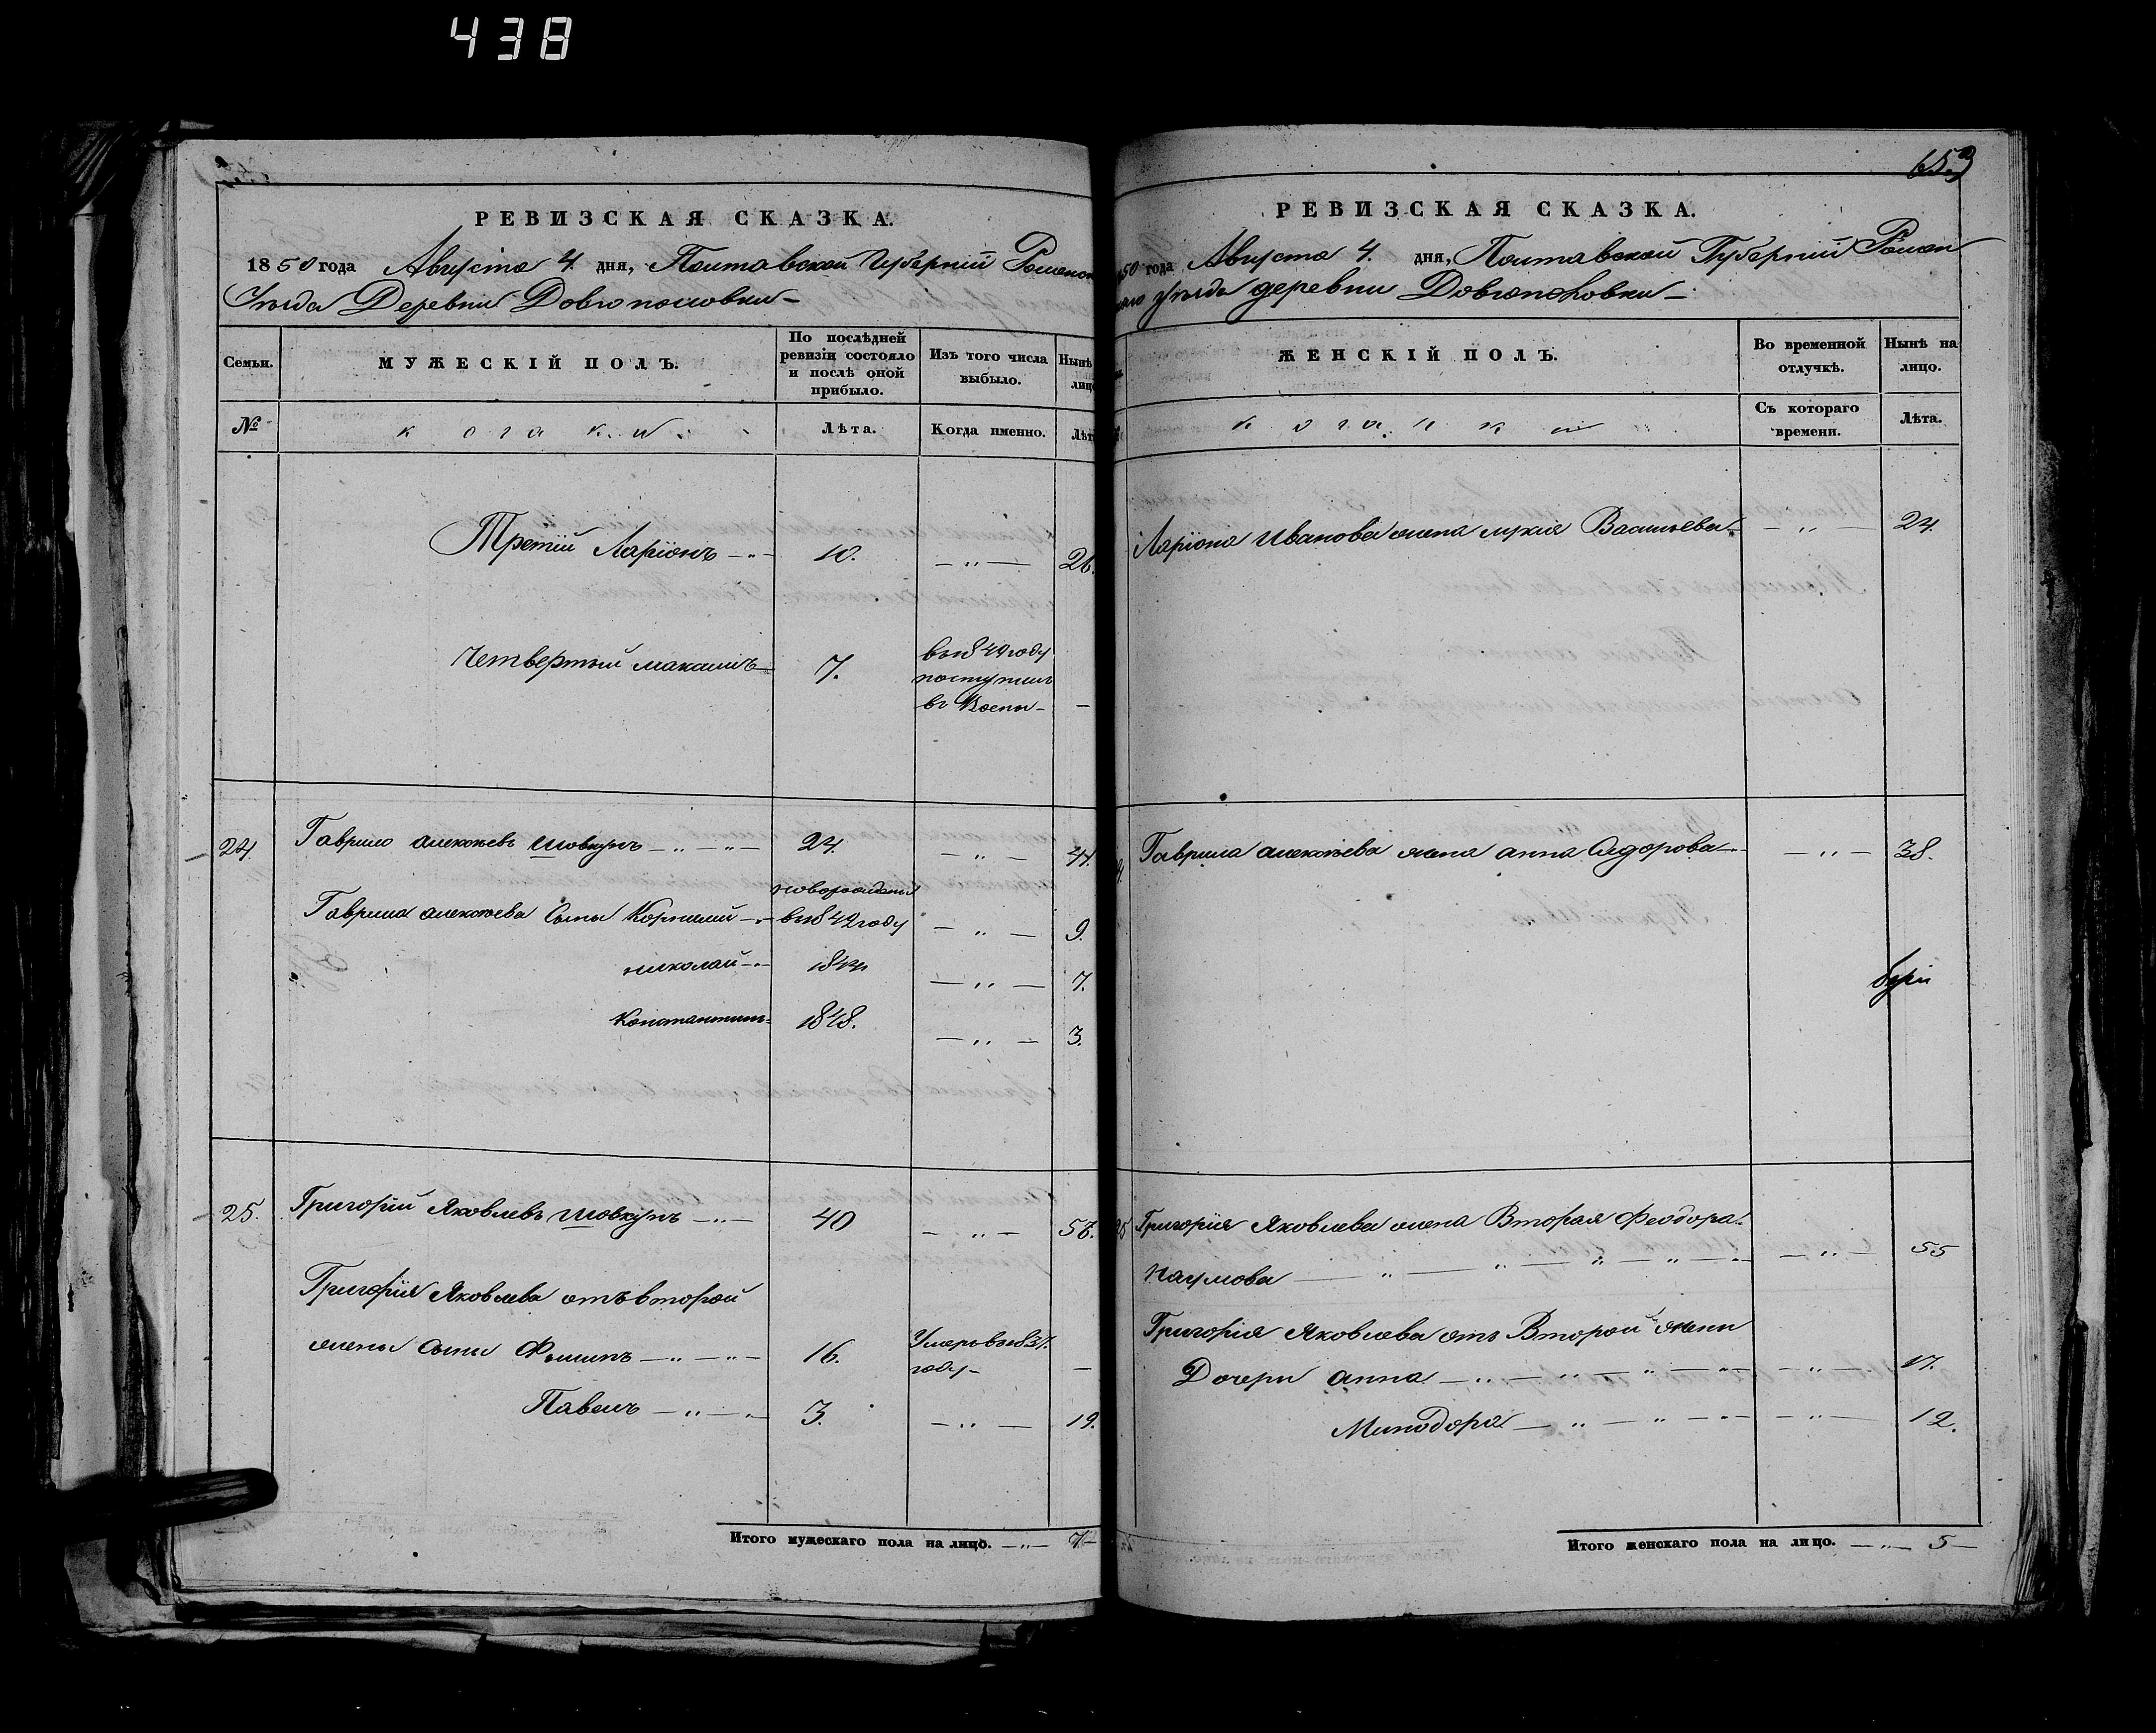 438
РЕВИЗСКАЯ СКАЗКА.
1850 года Августа 4. дня, Полтавской Губерніи Роменск
Уѣзда Деревни Довгополовки
Семьи.
МУЖЕСКІЙ ПОЛЪ.
По послѣдней ревизіи состояло и послѣ оной прибыло.
Изъ того числа выбыло.
Нынѣ лицо
№
козаки
Лѣта.
Когда именно.
Лѣт
Третій Ларіонъ 10. 26.
Четвертый Максимъ 7.
въ 1849 году
поступилъ
въ
24. Гаврило Алексѣевъ Шовкунъ 24. 44.
новорожденъ
Гаврила Алексѣева Сыны Корнилій въ 1842 году 9.
Николай 1844 7.
Константинъ 1848. 3.
25. Григорій Яковлевъ Шовкунъ 40 56.
Григорія Яковлева отъ второй
жены Сыны Филипъ 16. Умеръ въ 1837.
году
Павелъ 3. 19.
Итого мужескаго пола на лицо. 7
653
РЕВИЗСКАЯ СКАЗКА.
50 года Августа 4. дня, Полтавской Губерніи Ромен
скаго уѣзда деревни Довгополовки
ЖЕНСКІЙ ПОЛЪ.
Во временной отлучкѣ.
Нынѣ на лицо.
козачки
Съ котораго времени.
Лѣта.
Ларіона Иванова жена Васильева 24.
Гаврила Алексѣева жена Анна Сидорова 38.
Григорія Яковлева жена Вторая Феодора
Наумова 55
Григорія Яковлева отъ Второй жены
Дочери Анна 17.
Минодора 12.
Итого женскаго пола на лицо. 5